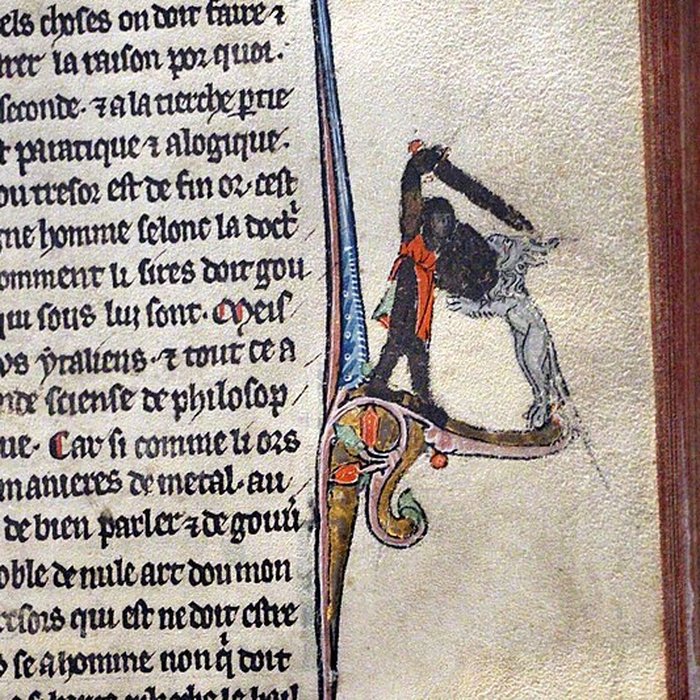 els choses on doit faire ⁊
trer la raison por quoi.
seconde. ⁊ a la tierche ptie
t pratique ⁊ a logique.
ou tresor est de fin or. cest
gne homme selonc la doct
omment li sires doit gou
qui sous lui sont. Meis
us ytaliens. ⁊ tout ce a
nde sciense de philosop
ue. Car si comme li ors
manieres de metal. au
de bien parler ⁊ de gouu
oble de nule art dou mon
resors qui est ne doit estre
se a homme non q̇ doit